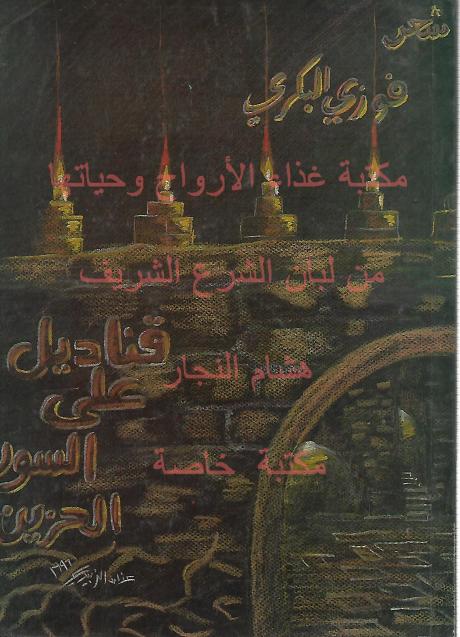 شعر
فوزي البكري
مكتبة غذاء الأرواح وحياتها
من لبان الشرع الشريف
هشام النجار
مكتبة خاصة
قناديل
على
السور
الحزين